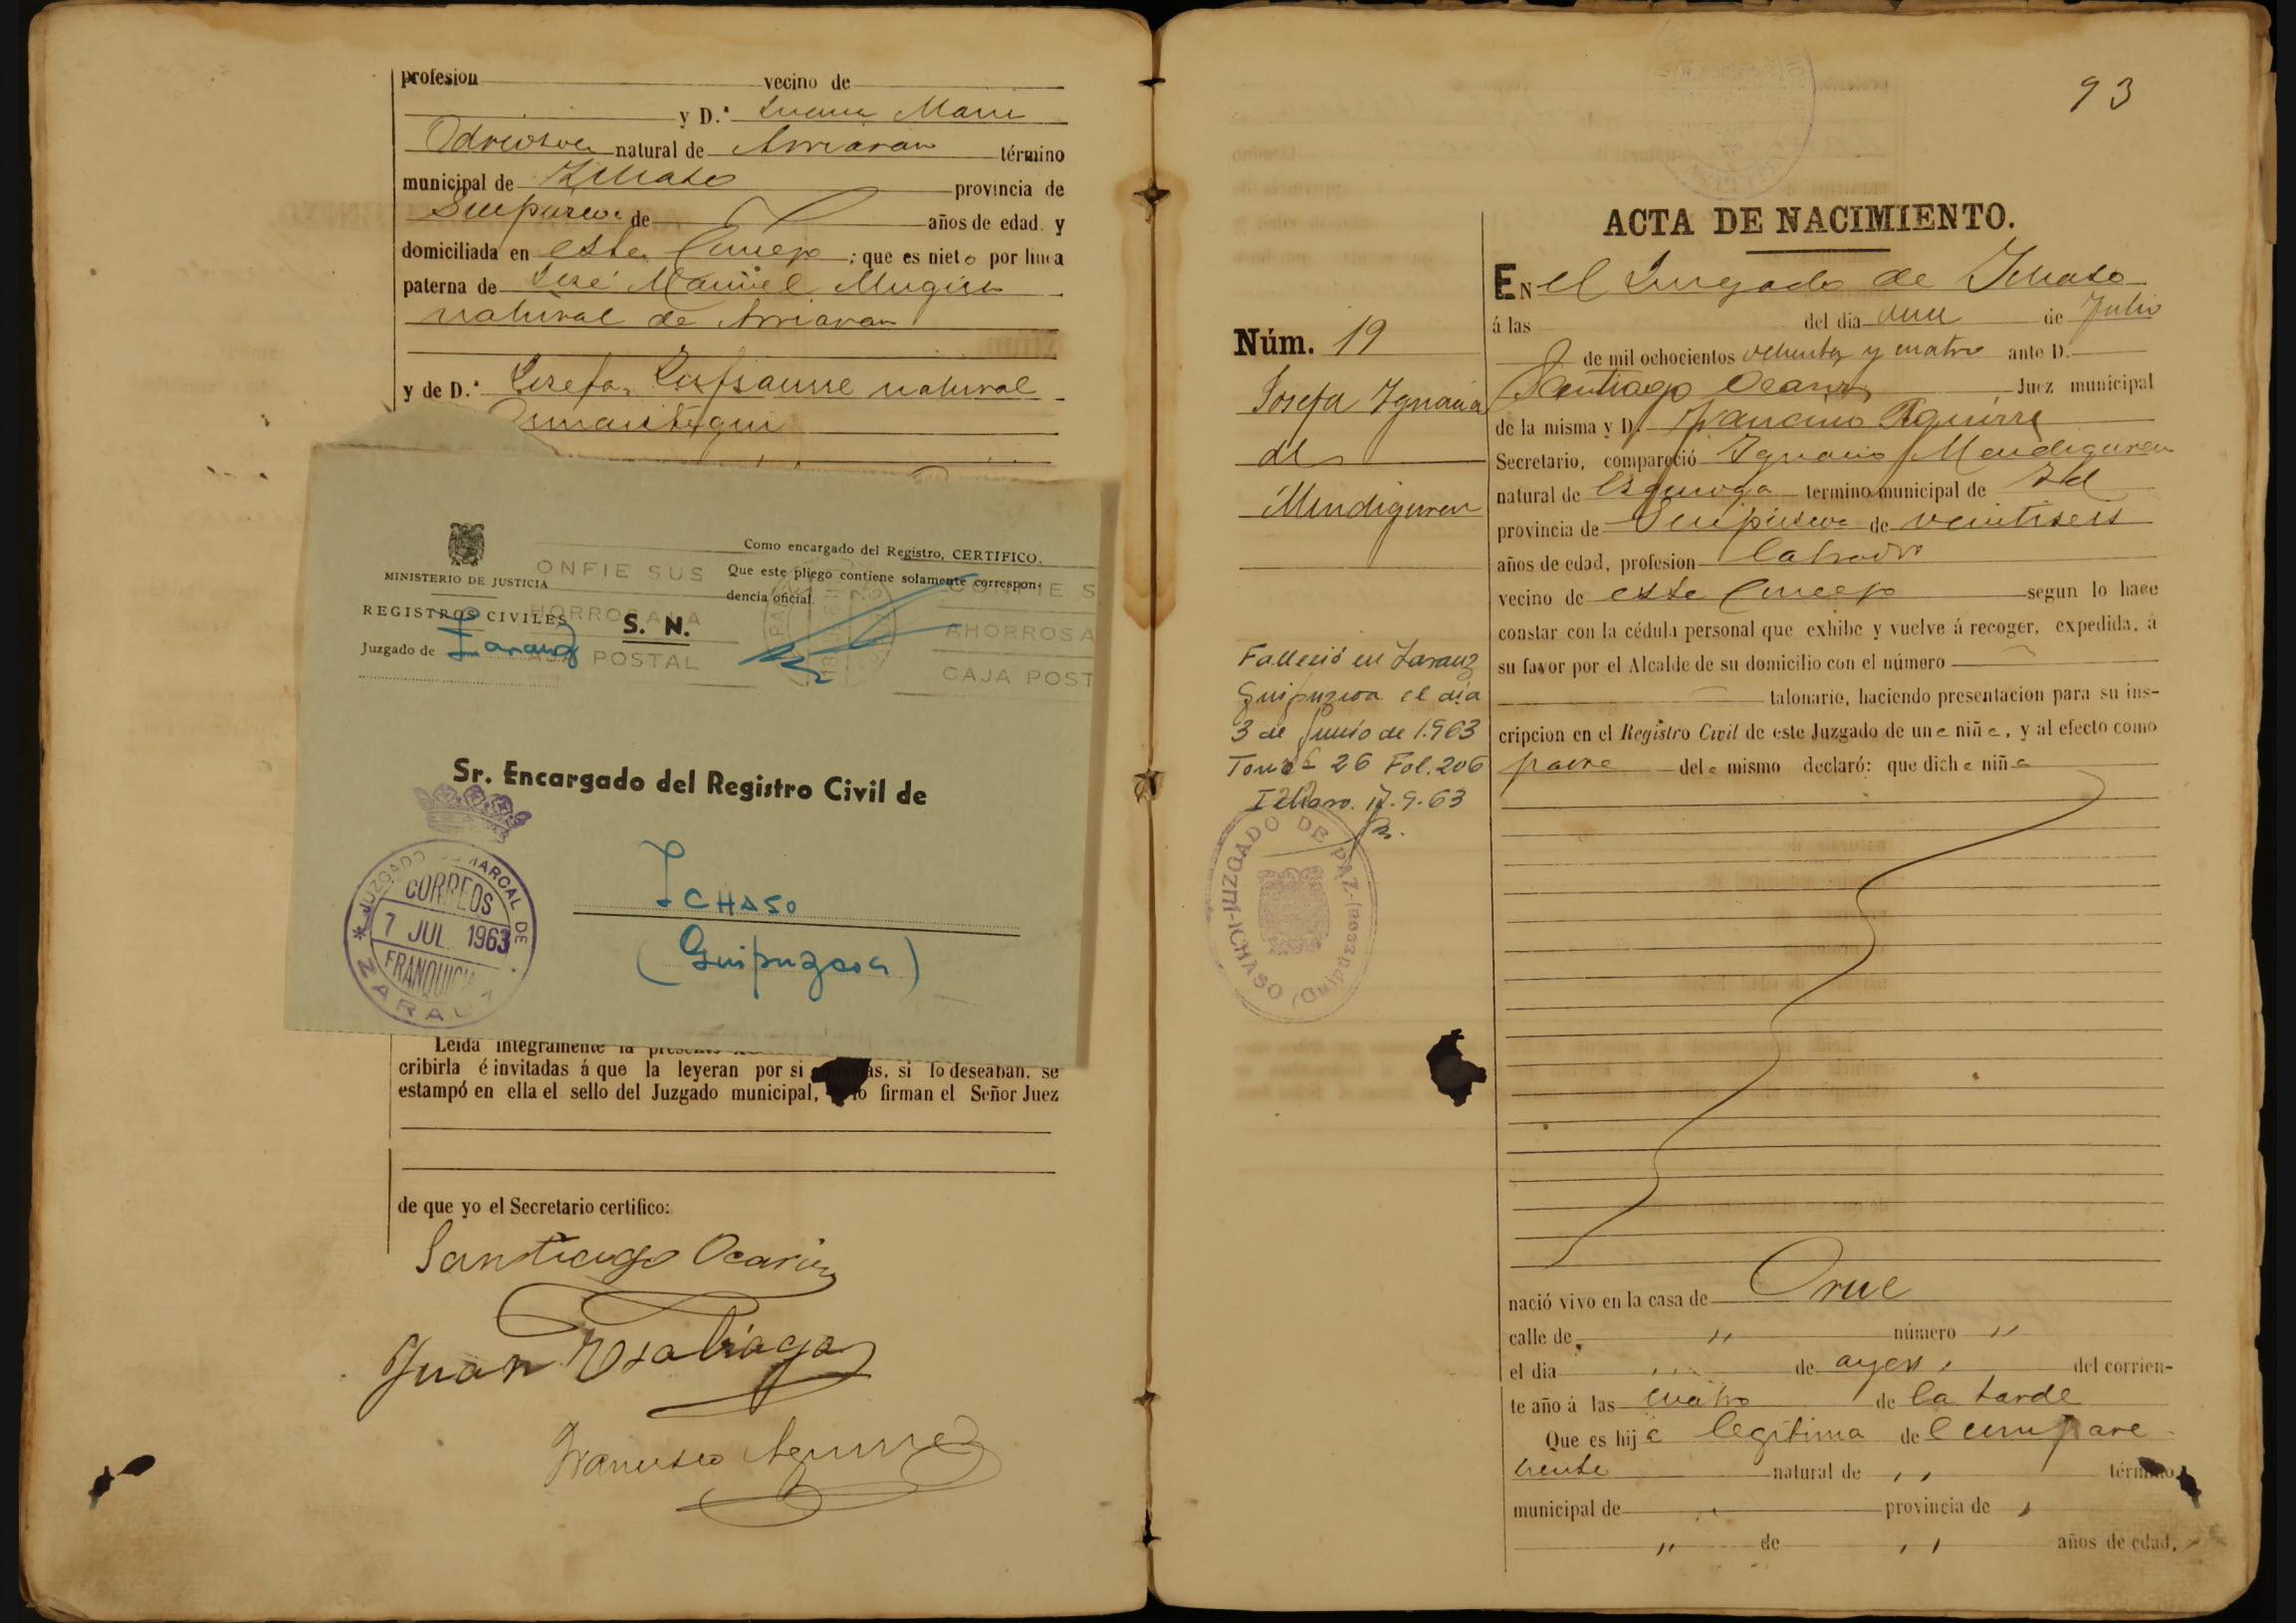 profesion vecino de
y D.ª Juana Maria
Odriosola natural de Arriaran término
municipal de Ichaso provincia de
Guipuzcoa de años de edad y
domiciliada en este Concejo ; que es nieto por línea
paterna de José Manuel Mugica
natural de Arriaran
y de D.ª Josefa natural
MINISTERIO DE JUSTICIA
REGISTROS CIVILES
Juzgado de Zarauz
S. N.
Como encargado del Registro, CERTIFICO.
Que este pliego contiene solamente correspon-
dencia oficial.
ONFIE SUS
HORROS A LA
AJA POSTAL
CONFIE S
AHORROS A
CAJA POST
Sr. Encargado del Registro Civil de
ICHASO
(Guipuzcoa)
JUZGADO COMARCAL DE
CORREOS
7 JUL 1963
FRANQUICIA
ZARAU
Leida integramente la
cribirla é invitadas á que la leyeran por si as, si lo deseaban, se
estampó en ella el sello del Juzgado municipal, lo firman el Señor Juez
de que yo el Secretario certifico:
Santiago Ocariz
Juan Usabiaga
Francisco Aguirre
93
ACTA DE NACIMIENTO.
Núm. 19
Josefa Ignacia
de
Mendiguren
Falleció en Zarauz
Guipuzcoa el día
3 de Junio de 1.963
Tomo- 26 Fol. 206
Ichaso. 17.9.63
JUZGADO DE PAZ - ICHASO (Guipúzcoa)
EN el Juzgado de Ichaso
á las del dia once de Julio
de mil ochocientos ochenta y cuatro ante D.
Santiago Ocariz Juez municipal
de la misma y D. Francisco Aguirre
Secretario, compareció Ignacio Mendiguren
natural de Ezquioga termino municipal de Id
provincia de Guipuzcoa de veintiseis
años de edad, profesion labrador
vecino de este Concejo segun lo hace
constar con la cédula personal que exhibe y vuelve á recoger, expedida, á
su favor por el Alcalde de su domicilio con el número
talonario, haciendo presentacion para su ins-
cripcion en el Registro Civil de este Juzgado de una niña, y al efecto como
padre dela mismo declaró: que dicha niña
nació vivo en la casa de Orue
calle de " número "
el dia " de ayer del corrien-
te año á las cuatro de la tarde
Que es hija legítima del compare-
ciente natural de " término
municipal de " provincia de "
" de " años de edad,